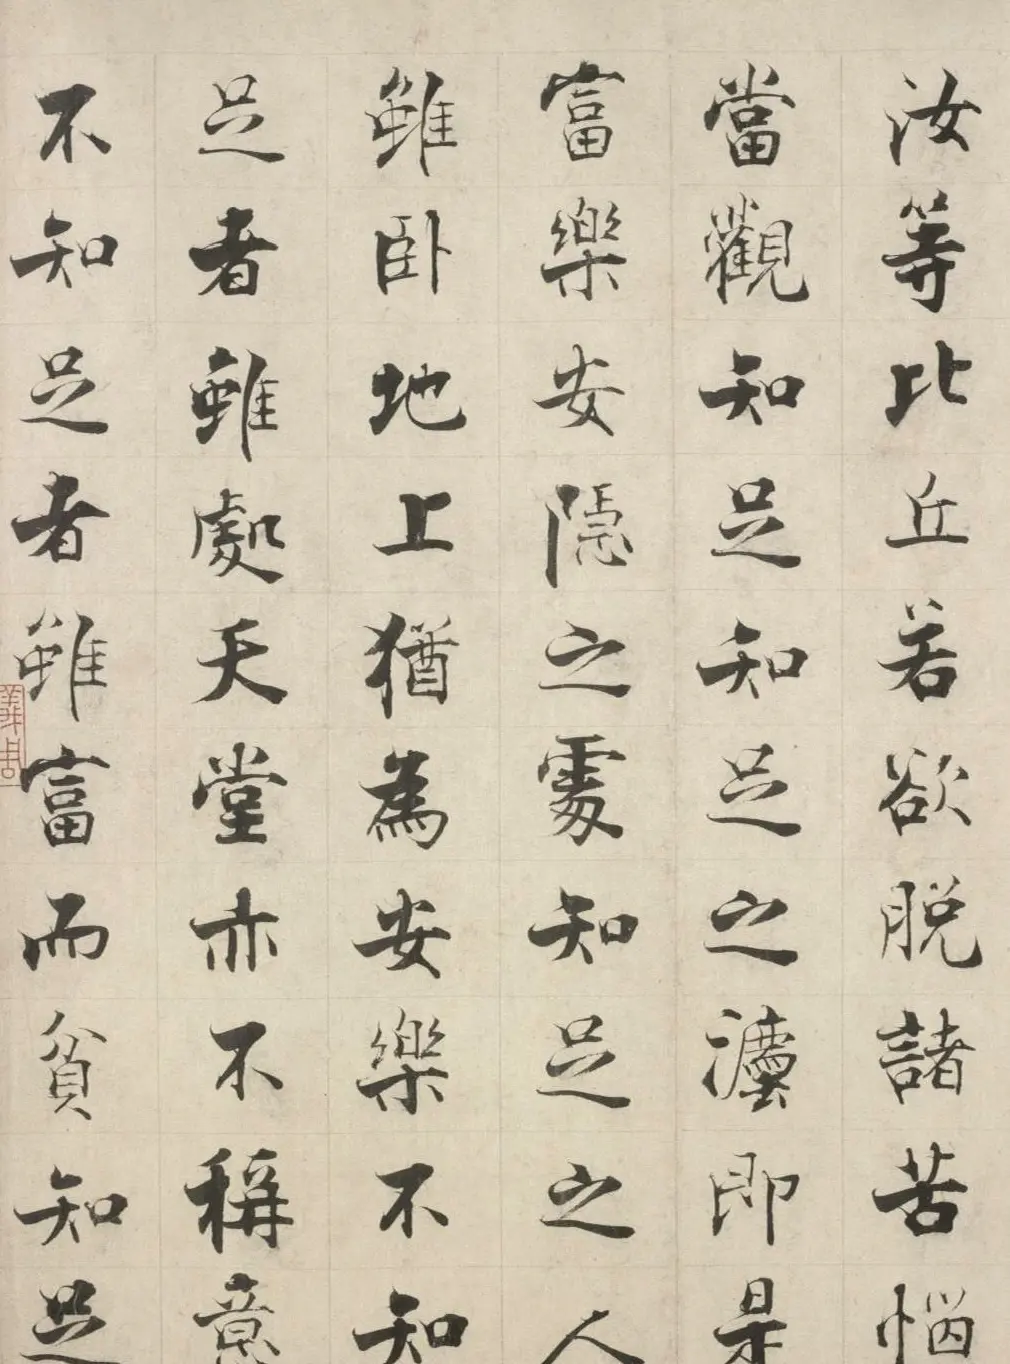 汝等比丘若欲脱諸苦惱
當觀知足知足之灋即是
富樂安隱之處知足之人
雖卧地上猶為安樂不知
足者雖處天堂亦不稱意
不知足者雖富而貧知足